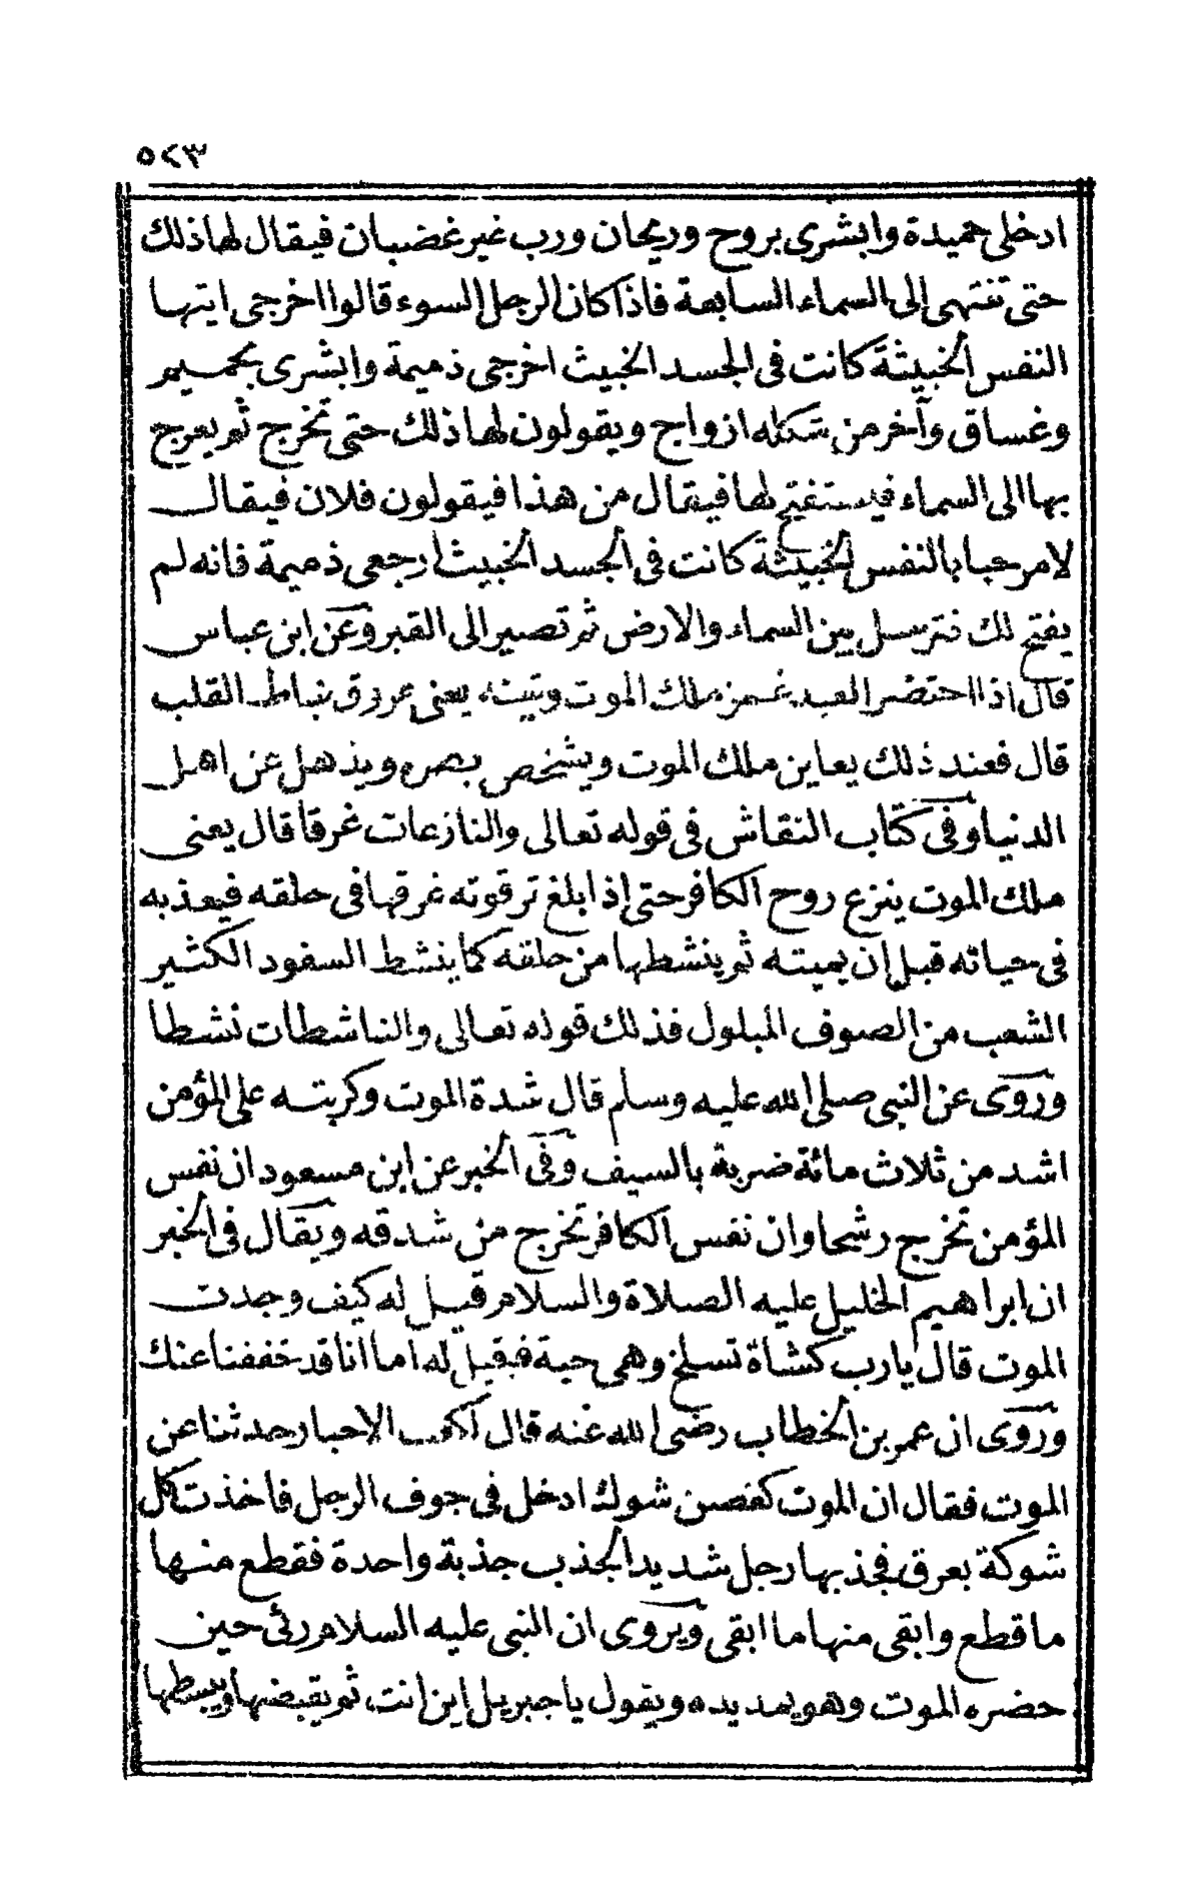 ٥٢٣
ادخلى حميدة وابشرى بروح وريحان ورب غير غضبان فيقال لها ذلك
حتى تنتهى الى السماء السابعة فاذا كان الرجل السوء قالوا اخرجى ايتها
النفس الخبيثة كانت فى الجسد الخبيث اخرجى ذميمة وابشرى بحميم
وغساق وآخر من شكله ازواج ويقولون لها ذلك حتى تخرج ثم يعرج
بها الى السماء فيستفتح لها فيقال من هذا فيقولون فلان فيقال
لا مرحبا بالنفس الخبيثة كانت فى الجسد الخبيث ارجعى ذميمة فانه لم
يفتح لك فترسل بين السماء والارض ثم تصير الى القبر وعن ابن عباس
قال اذا احتضر العبد غمز ملك الموت وتينه يعنى عروق نباط القلب
قال فعند ذلك يعاين ملك الموت ويشخص بصره ويذهل عن اهل
الدنيا وفى كتاب النقاش فى قوله تعالى والنازعات غرقا قال يعنى
ملك الموت ينزع روح الكافر حتى اذا بلغ ترقوته غرقها فى حلقه فيعذبه
فى حياته قبل ان يميته ثم ينشطها من حلقه كما ينشط السفود الكثير
الشعب من الصوف المبلول فذلك قوله تعالى والناشطات نشطا
وروى عن النبى صلى الله عليه وسلم قال شدة الموت وكربته على المؤمن
اشد من ثلاث مائة ضربة بالسيف وفى الخبر عن ابن مسعود ان نفس
المؤمن تخرج رشحا وان نفس الكافر تخرج من شدقه ويقال فى الخبر
ان ابراهيم الخليل عليه الصلاة والسلام قيل له كيف وجدت
الموت قال يارب كشاة تسلخ وهى حية فقيل له اما انا قد خففنا عنك
وروى ان عمر بن الخطاب رضى الله عنه قال لكعب الاحبار حدثنا عن
الموت فقال ان الموت كغصن شوك ادخل فى جوف الرجل فاخذت كل
شوكة بعرق فجذبها رجل شديد الجذب جذبة واحدة فقطع منها
ما قطع وابقى منها ما ابقى ويروى ان النبى عليه السلام رئى حين
حضره الموت وهو يمد يده ويقول يا جبريل اين انت ثم يقبضها ويبسطها